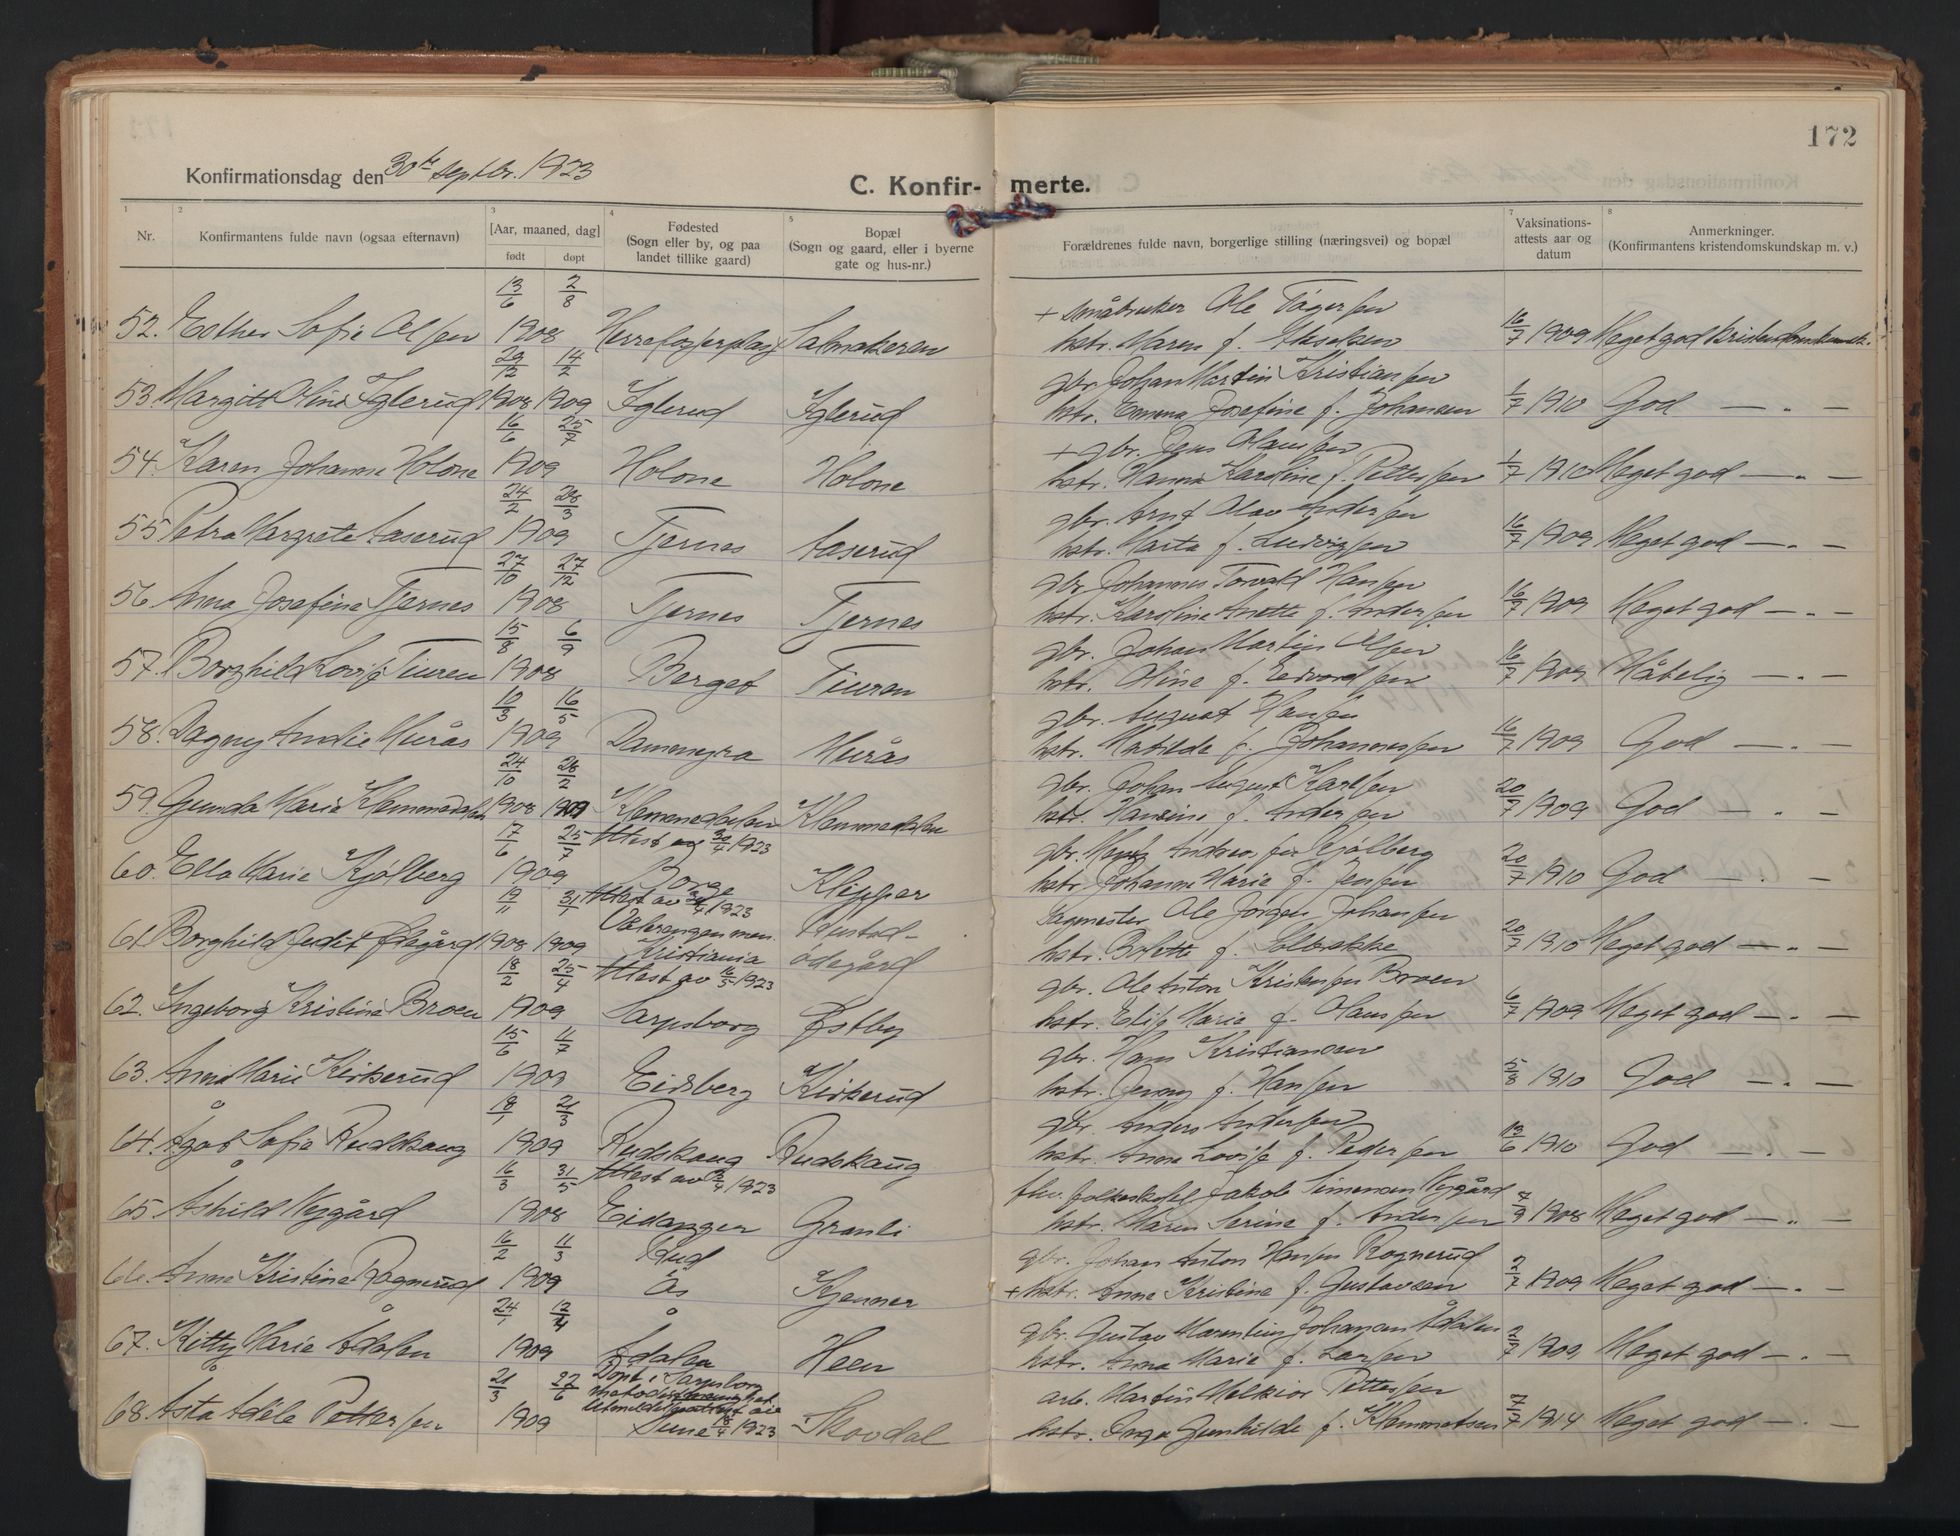 172
Konfirmationsdag den 30te septbr. 1923
C. Konfir- merte.
1 2 3 4 5 7 8
Nr.
Konfirmantens fulde navn (ogsaa efternavn)
[Aar, maaned, dag]
født døpt
Fødested
(Sogn eller by, og paa
landet tillike gaard)
Bopæl
(Sogn og gaard, eller i byerne
gate og hus-nr.)
Forældrenes fulde navn, borgerlige stilling (næringsvei) og bopæl
Vaksinations-
attests aar og
datum
Anmerkninger.
(Konfirmantens kristendomskundskap m. v.)
13/6 2/8 + småbruker Ole
52. Esther Sofie Olsen 1908 hstr. Maren f. 16/7 1909 Meget god
29/12 14/2 gbr. Johan Martin Kristiansen
53. Margitt Oline Iglerud 1908 1909 Iglerud Iglerud hstr. Emma Josefine f. Johansen 1/7 1910 God — „ —
16/6 25/7 + gbr. Jens Hansen
54. Karen Johanne Holone 1909 Holone Holone hstr. Hanna Karoline f. Pettersen 1/7 1910 Meget god — „ —
24/2 28/3 gbr. Arnt Olav Andersen
55 Petra Margrete Aaserud 1909 Tjernes Aaserud hstr. Marta f. Ludvigsen 16/7 1909 Meget god — „ —
27/10 27/12 gbr. Johannes Torvald Hansen
56. Anna Josefine Tjernes 1908 Tjernes Tjernes hstr. Karoline Anette f. Andersen 16/7 1909 Meget god — „ —
15/8 6/9 gbr. Johan Martin Olsen
57. Borghild Lovise Tiuren 1908 Berget Tiuren hstr. Oline f. Edvardsen 16/7 1909 Måtelig — „ —
10/3 16/5 gbr. August Hansen
58. Dagny Murås 1909 Dammyra Murås hstr. Matilde f. Johannessen 16/7 1909 God — „ —
24/10 28/2 gbr. Johan August Karlsen
59. Gunda Marie Klemmedalen 1908 1909 Klemmedalen Klemmedalen hstr. Hansine f. Andersen 20/7 1909 God — „ —
17/6 25/7 Attest av 30/4 1923 gbr. Andreas Kjølberg
60. Ella Marie Kjølberg 1909 Borge Klypper hstr. Johanne Marie f. Jensen 20/7 1910 God — „ —
31/1 Attest av 1923 Sagmester Ole Jørgen Johansen
61. Borghild Judit Ødegård 1908 1909 Vålerengen men. Kristiania ødegård hstr. Bolette f. Solbrekke 20/7 1910 Meget god — „ —
18/2 25/4 Attest av 16/5 1923 gbr. Ole Anton Kristensen Broen
62. Ingeborg Kristine Broen 1909 Sarpsborg Østby hstr. Elise Marie f. Hansen 6/7 1909 Meget god — „ —
15/6 11/7 gbr. Hans Kristiansen
63. Anna Marie Kirkerud 1909 Eidsberg Kirkerud hstr. Jenny f. Hansen 5/8 1910 God — „ —
18/1 21/3 gbr. Anders Andersen
64. Ågot Sofie Rudskaug 1909 Rudskaug Rudskaug hstr. Anna Lovise f. Pedersen 13/6 1910 God — „ —
16/3 31/5 Attest av 1923 Jakob Simensen Nygård
65. Åshild Nygård 1908 Eidanger Granli hstr. Maren Serine f. Andersen 4/9 1908 Meget god — „ —
16/2 11/3 Rud gbr. Johan Anton Hansen Ragnerud
66. Anna Kristine Ragnerud 1909 Ås Kjenner + hstr. Anne Kristine f. Gustavsen 2/7 1909 Meget god — „ —
24/1 12/4 gbr. Gustav Marentius Johansen Ådalen
67. Kitty Marie Ådalen 1909 Ådalen Heen hstr. Anna Marie f. Larsen 2/7 1909 Meget god — „ —
21/3 27/6 Døpt i Sarpsborg arb. Martin Melkior Pettersen
68. Åsta Adèle Pettersen 1909 1923 Skovdal hstr. Inga Gunhilde f. Klemmetsen 7/7 1914 Meget god — „ —